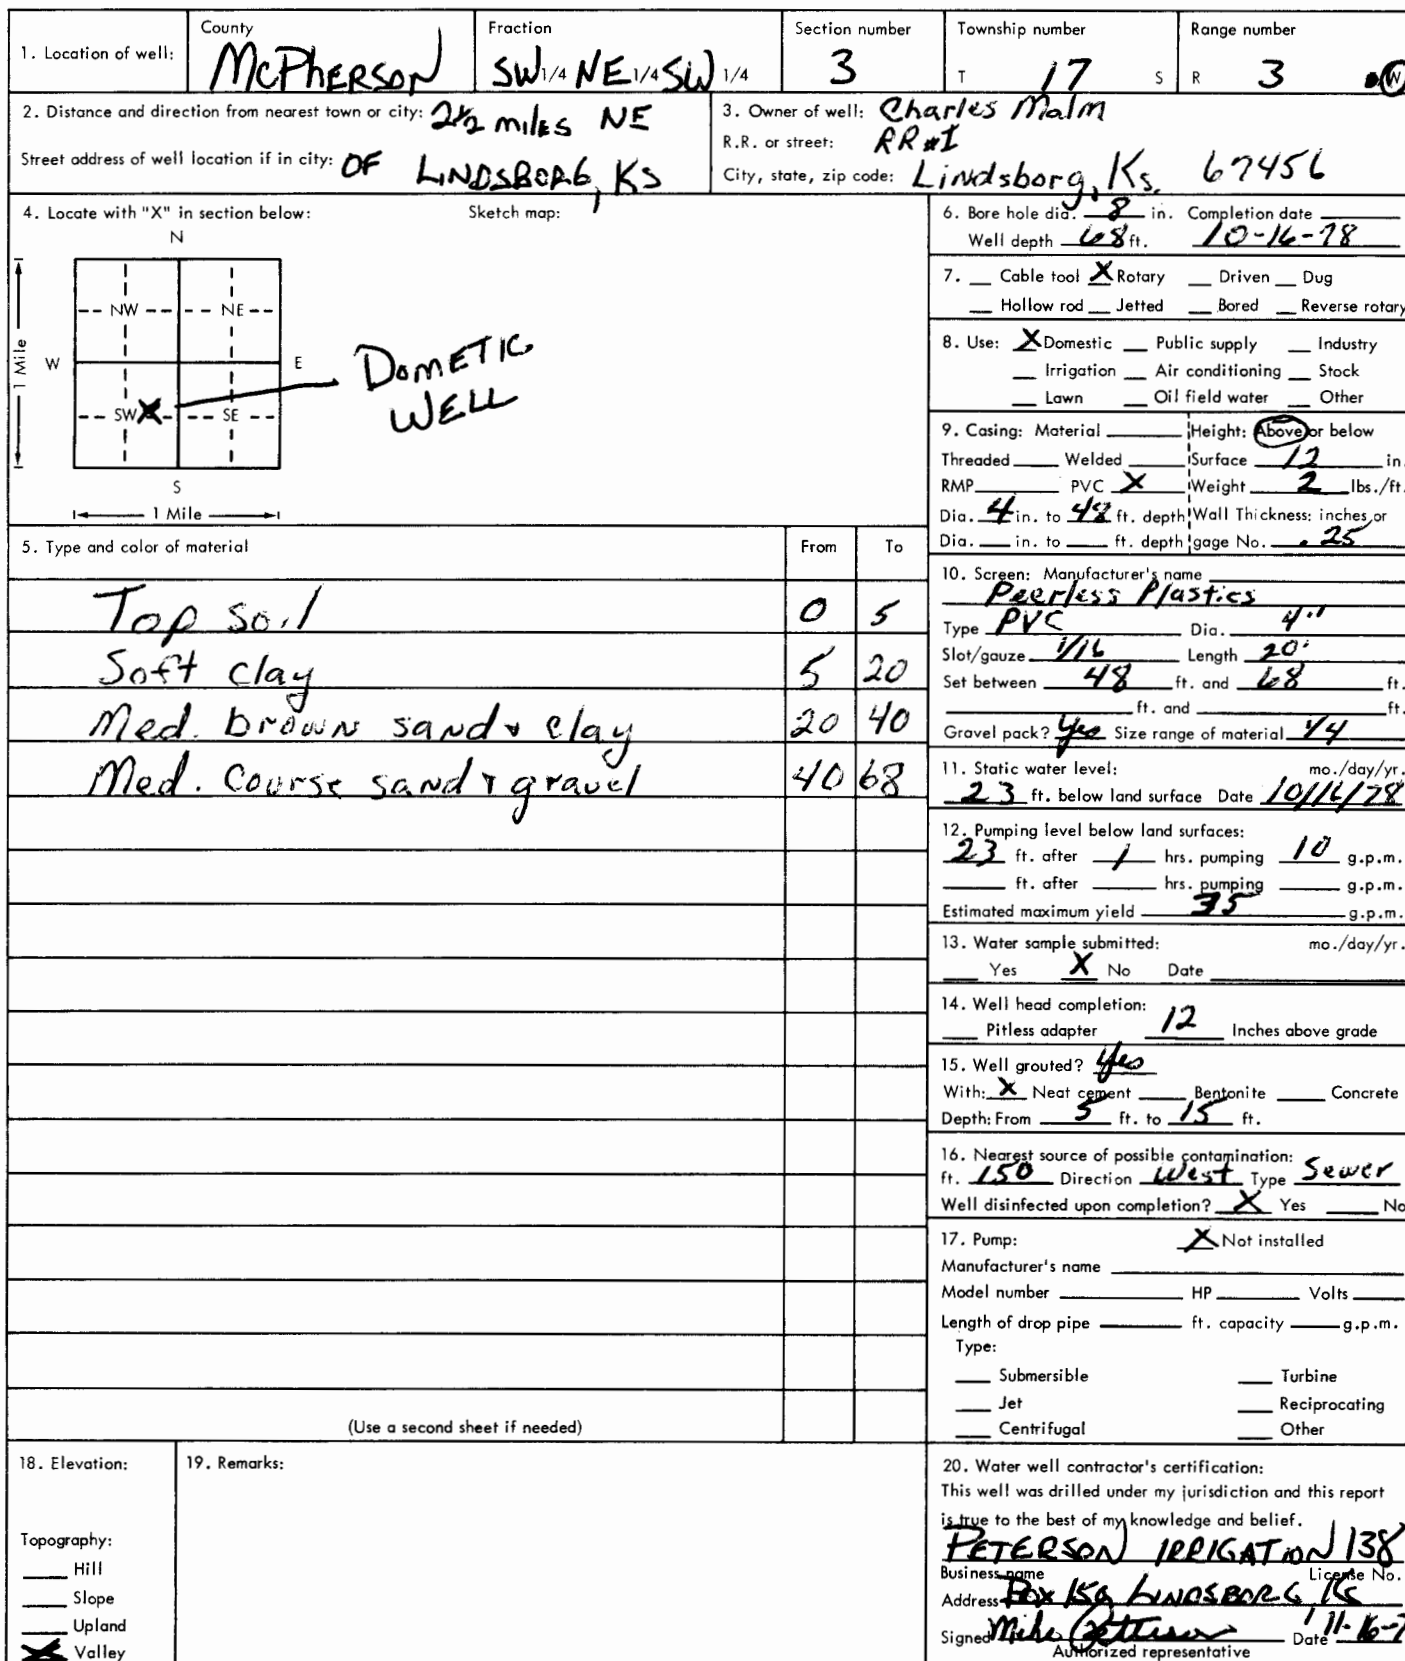 1. Location of well: County McPHERSON Fraction SW 1/4 NE 1/4 SW 1/4 Section number 3 Township number T 17 S Range number R 3 W
2. Distance and direction from nearest town or city: 2½ miles NE
Street address of well location if in city: OF LINDSBORG, KS
3. Owner of well: Charles Malm
R.R. or street: RR #1
City, state, zip code: Lindsborg, Ks. 67456
4. Locate with "X" in section below: Sketch map:
N
NW NE
W E
SW X SE
S
1 Mile
1 Mile
DOMETIC
WELL
5. Type and color of material From To
Top soil 0 5
Soft clay 5 20
Med. brown sand & clay 20 40
Med. Course sand & gravel 40 68
(Use a second sheet if needed)
6. Bore hole dia. 8 in. Completion date
Well depth 68 ft. 10-16-78
7. Cable tool X Rotary Driven Dug
Hollow rod Jetted Bored Reverse rotary
8. Use: X Domestic Public supply Industry
Irrigation Air conditioning Stock
Lawn Oil field water Other
9. Casing: Material Height: Above or below
Threaded Welded Surface 12 in.
RMP PVC X Weight 2 lbs./ft.
Dia. 4 in. to 48 ft. depth Wall Thickness: inches or
Dia. in. to ft. depth gage No. .25
10. Screen: Manufacturer's name
Peerless Plastics
Type PVC Dia. 4"
Slot/gauze 1/16 Length 20'
Set between 48 ft. and 68 ft.
ft. and ft.
Gravel pack? Yes Size range of material 1/4
11. Static water level: mo./day/yr.
23 ft. below land surface Date 10/16/78
12. Pumping level below land surfaces:
23 ft. after 1 hrs. pumping 10 g.p.m.
ft. after hrs. pumping g.p.m.
Estimated maximum yield 35 g.p.m.
13. Water sample submitted: mo./day/yr.
Yes X No Date
14. Well head completion:
Pitless adapter 12 Inches above grade
15. Well grouted? Yes
With: X Neat cement Bentonite Concrete
Depth: From 5 ft. to 15 ft.
16. Nearest source of possible contamination:
ft. 150 Direction West Type Sewer
Well disinfected upon completion? X Yes No
17. Pump: X Not installed
Manufacturer's name
Model number HP Volts
Length of drop pipe ft. capacity g.p.m.
Type:
Submersible Turbine
Jet Reciprocating
Centrifugal Other
18. Elevation:
Topography:
Hill
Slope
Upland
X Valley
19. Remarks:
20. Water well contractor's certification:
This well was drilled under my jurisdiction and this report
is true to the best of my knowledge and belief.
PETERSON IRRIGATION 138
Business name License No.
Address Box LINDSBORG, KS
Signed Mike Peterson Date 11-16-7
Authorized representative